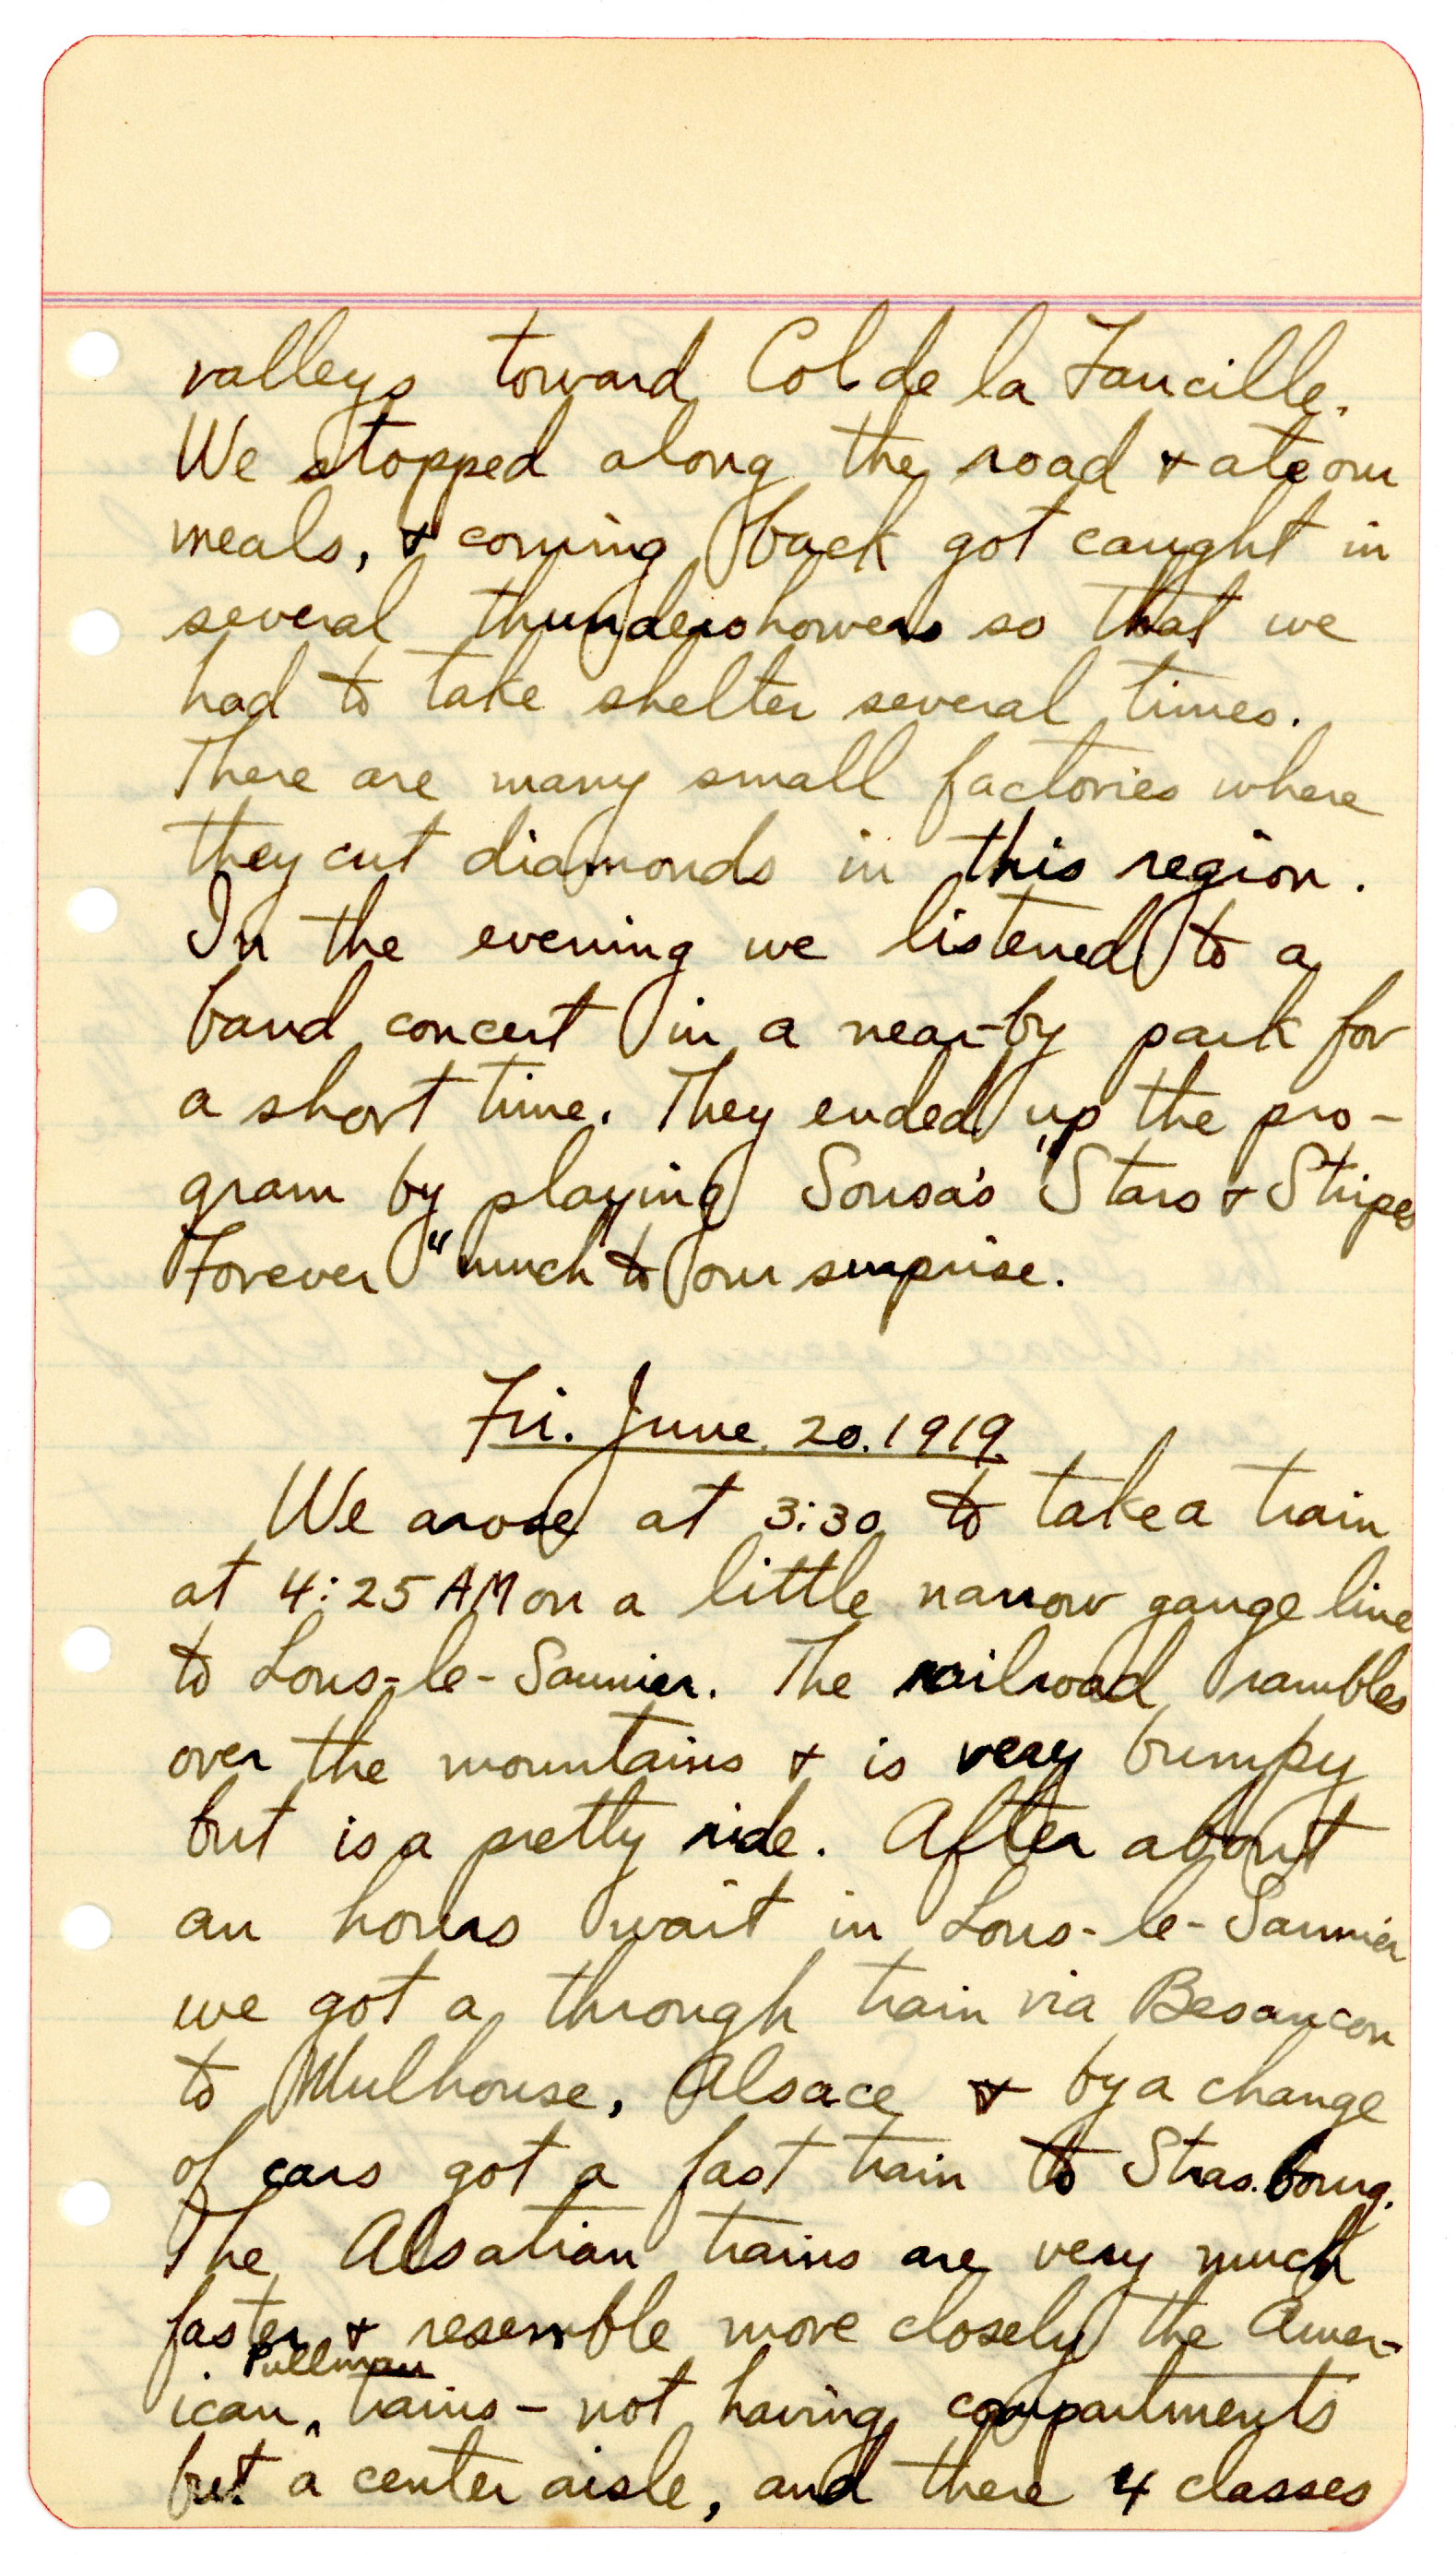 valleys toward Col de la Faucille.
We stopped along the road & ate our
meals, & coming back got caught in
several thundershowers so that we
had to take shelter several times.
There are many small factories where
they cut diamonds in this region.
In the evening we listened to a
band concert in a near-by park for
a short time. They ended up the pro-
gram by playing Sousa's "Stars & Stripes
Forever" much to our surprise.
Fri. June. 20. 1919.
We arose at 3:30 to take a train
at 4:25 AM on a little narrow gauge line
to Lons-le-Saunier. The railroad rambles
over the mountains & is very bumpy
but is a pretty ride. After about
an hours wait in Lons-le-Saunier
we got a through train via Besancon
to Mulhouse, Alsace & by a change
of cars got a fast train to Strasbourg.
The Alsatian trains are very much
faster & resemble more closely the Amer-
Pullman
ican ‸ trains - not having compartments
but a center aisle, and there 4 classes